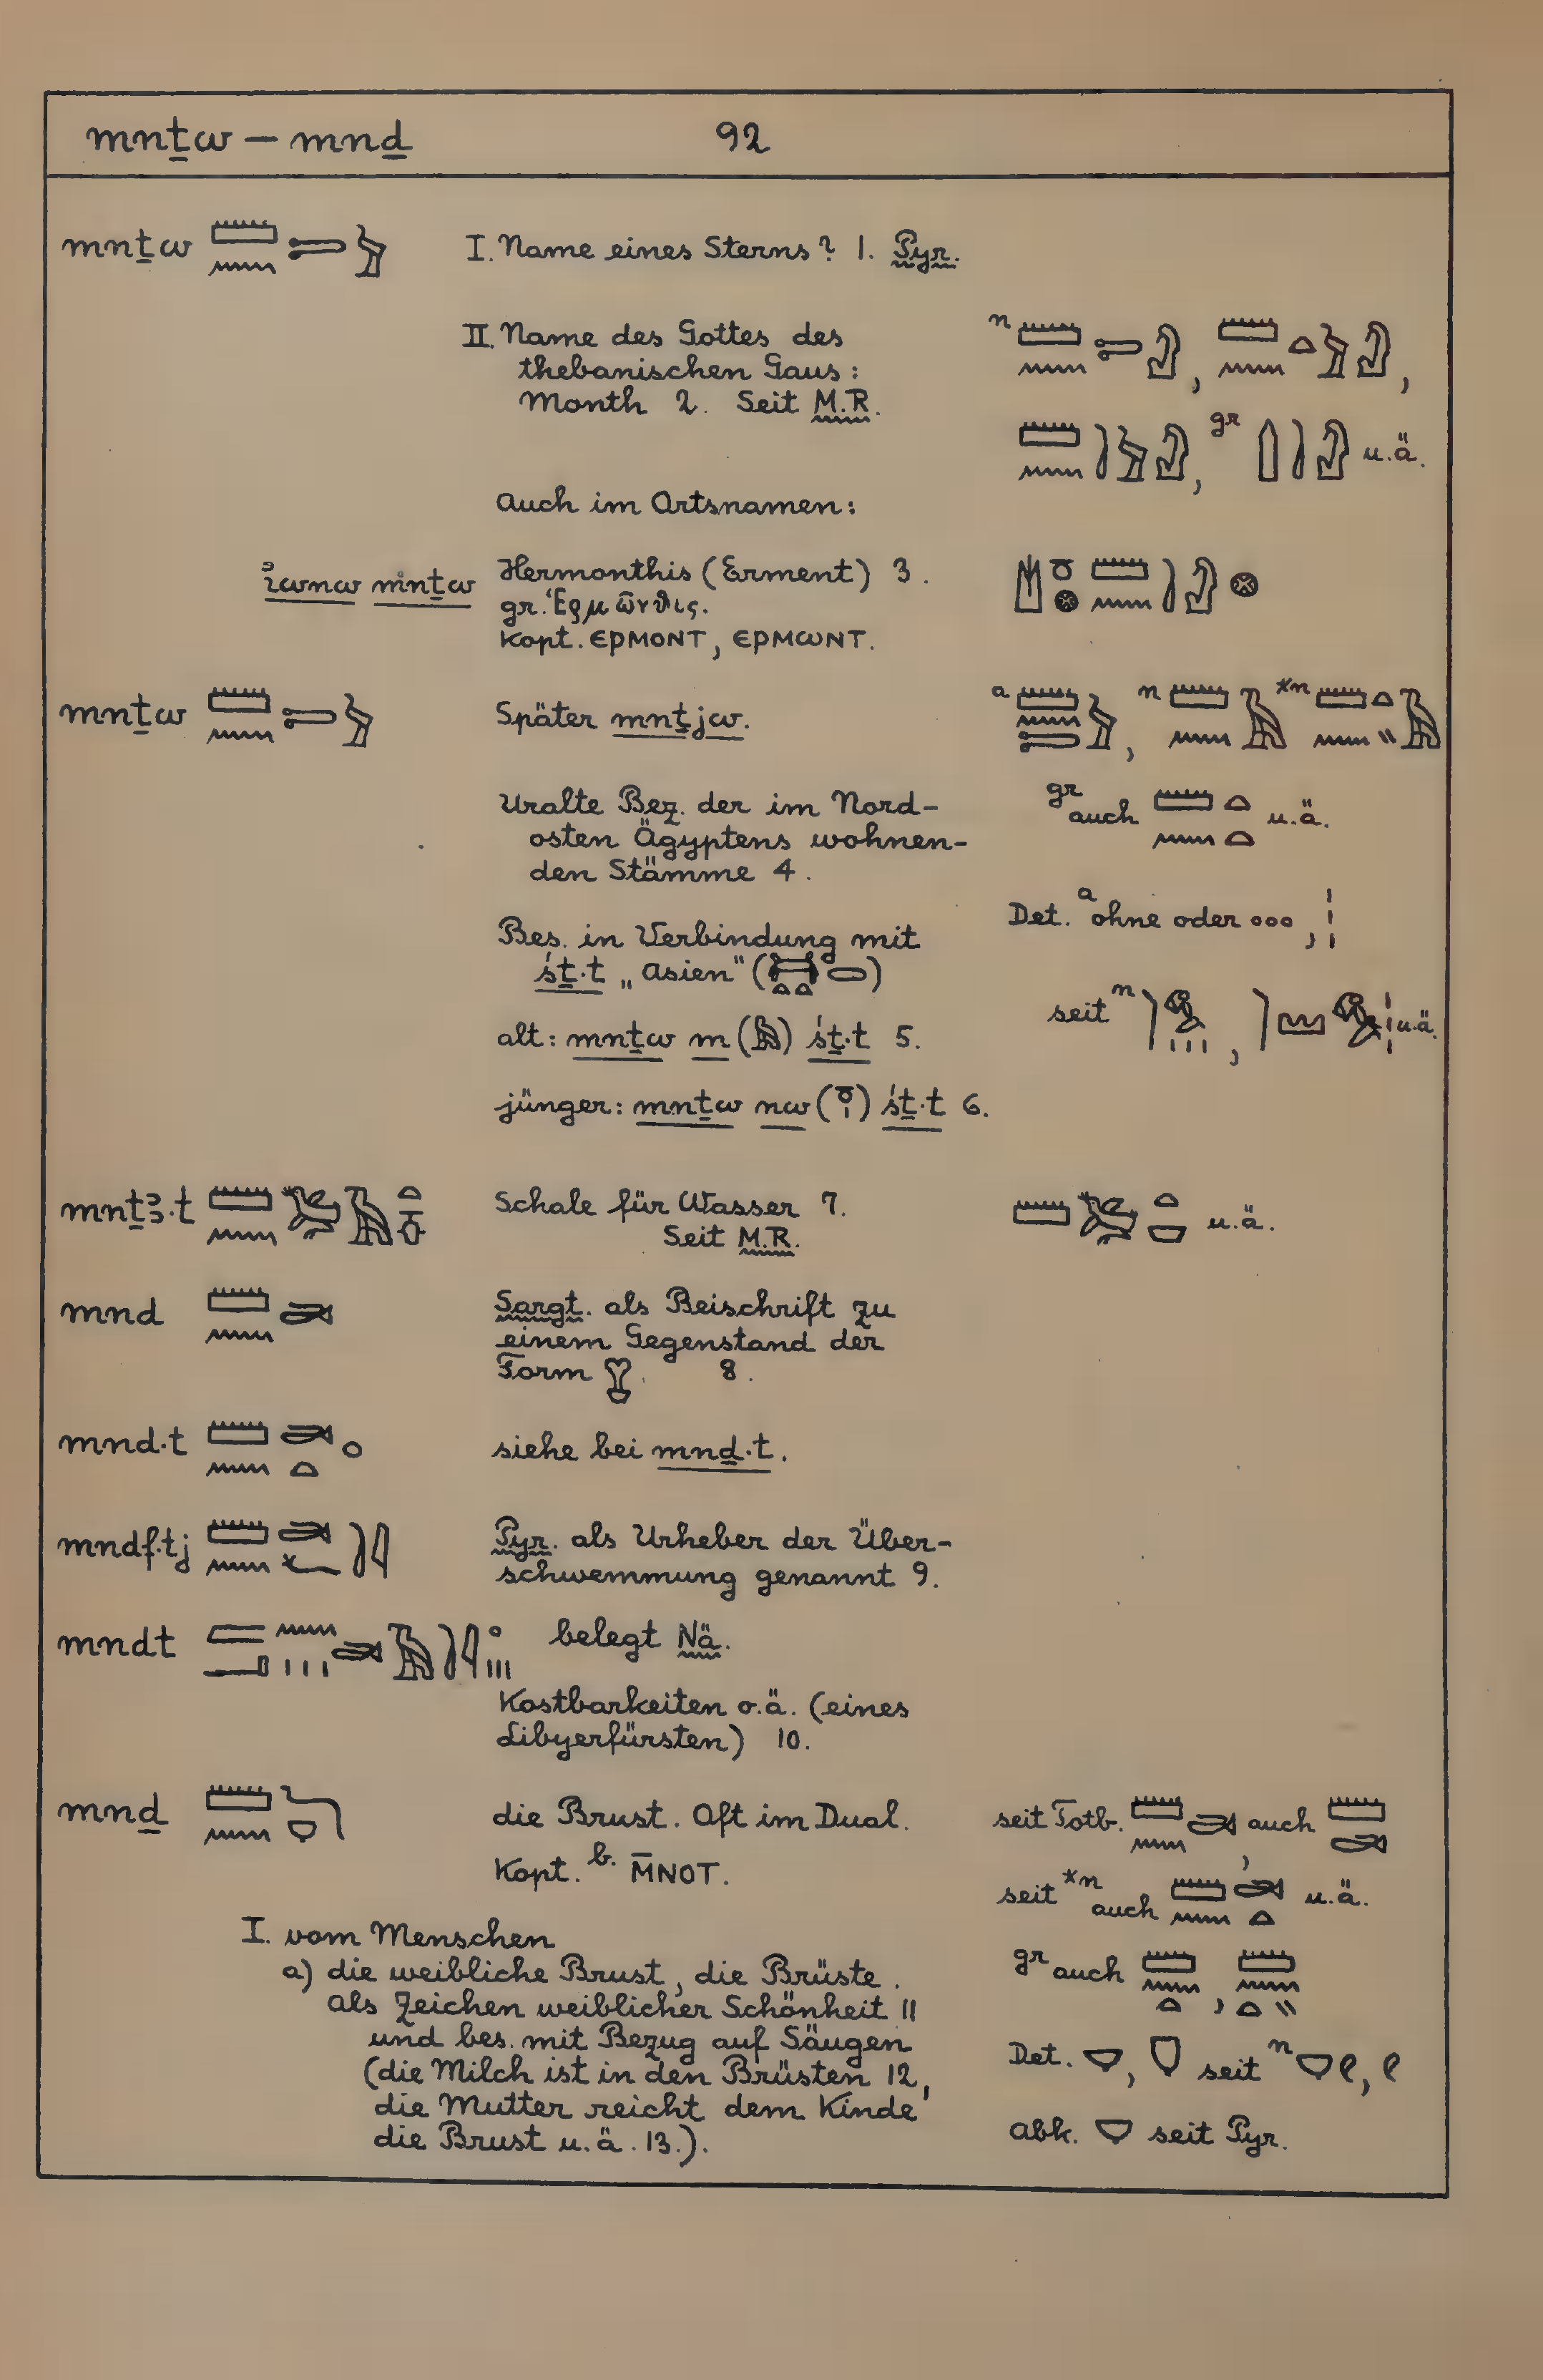 mnṯw – mnḏ 92
mnṯw I. Name eines Sterns? 1. Pyr.
II. Name des Gottes des
thebanischen Gaus:
Month 2. Seit M.R.
n , ,
, gr u.ä.
Auch im Ortsnamen:
i͗wnw mnṯw Hermonthis (Erment) 3.
gr. Ἑρμῶνθις.
Kopt. ⲈⲢⲘⲞⲚⲦ, ⲈⲢⲘⲰⲚⲦ.
mnṯw Später mnṯjw. a , n *n
Uralte Bez. der im Nord-
osten Ägyptens wohnen-
den Stämme 4.
gr auch u.ä.
Det. a ohne oder ooo,
Bes. in Verbindung mit
śṯ·t „Asien" ( )
seit n , u.ä.
alt: mnṯw m ( ) śṯ·t 5.
jünger: mnṯw nw ( ) śṯ·t 6.
mnṯꜣ·t Schale für Wasser 7. u.ä.
Seit M.R.
mnd Sargt. als Beischrift zu
einem Gegenstand der
Form 8.
mnd·t siehe bei mnḏ·t.
mndf·tj Pyr. als Urheber der Über-
schwemmung genannt 9.
mndt belegt Nä.
Kostbarkeiten o.ä. (eines
Libyerfürsten) 10.
mnḏ die Brust. Oft im Dual. seit Totb. , auch
Kopt. b. Ⲙ̄ⲚⲞⲦ.
seit *n auch u.ä.
I. vom Menschen
a) die weibliche Brust, die Brüste.
Als Zeichen weiblicher Schönheit 11
und bes. mit Bezug auf Säugen
(die Milch ist in den Brüsten 12,
die Mutter reicht dem Kinde
die Brust u.ä. 13.).
gr auch ,
Det. , seit n ,
Abk. seit Pyr.